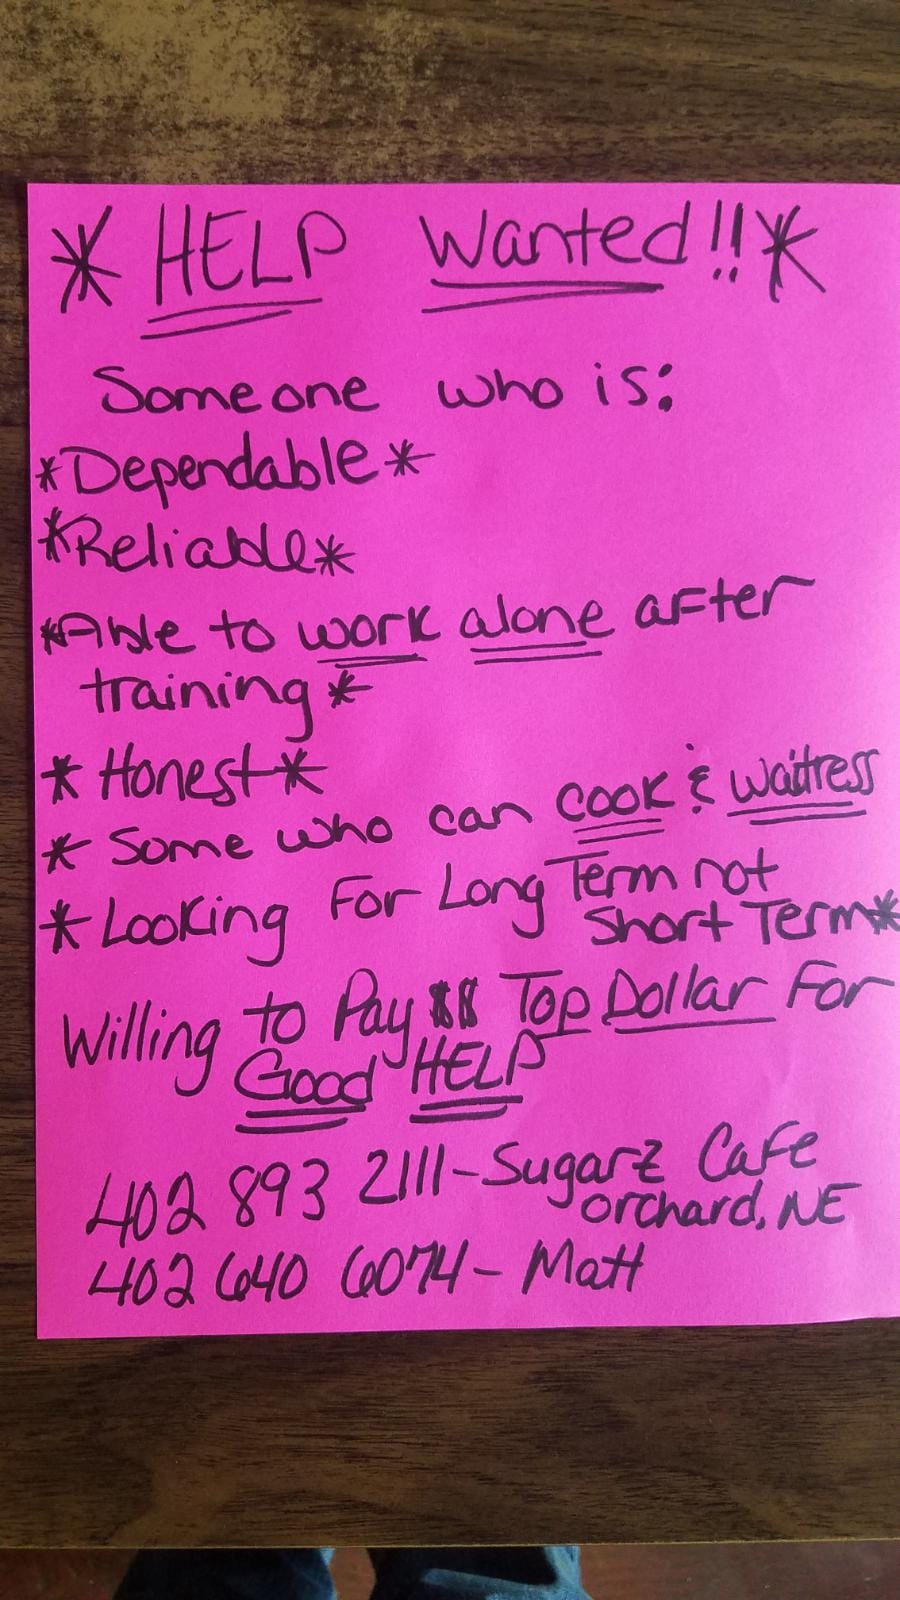 * HELP Wanted!! *
Someone who is:
*Dependable*
*Reliable*
*Able to work alone after
training*
* Honest*
* Some who can cook & waitress
* Looking For Long Term not
Short Term*
Willing to Pay $$ Top Dollar For
Good HELP
402 893 2111-Sugarz Cafe
Orchard, NE
402 640 6074- Matt